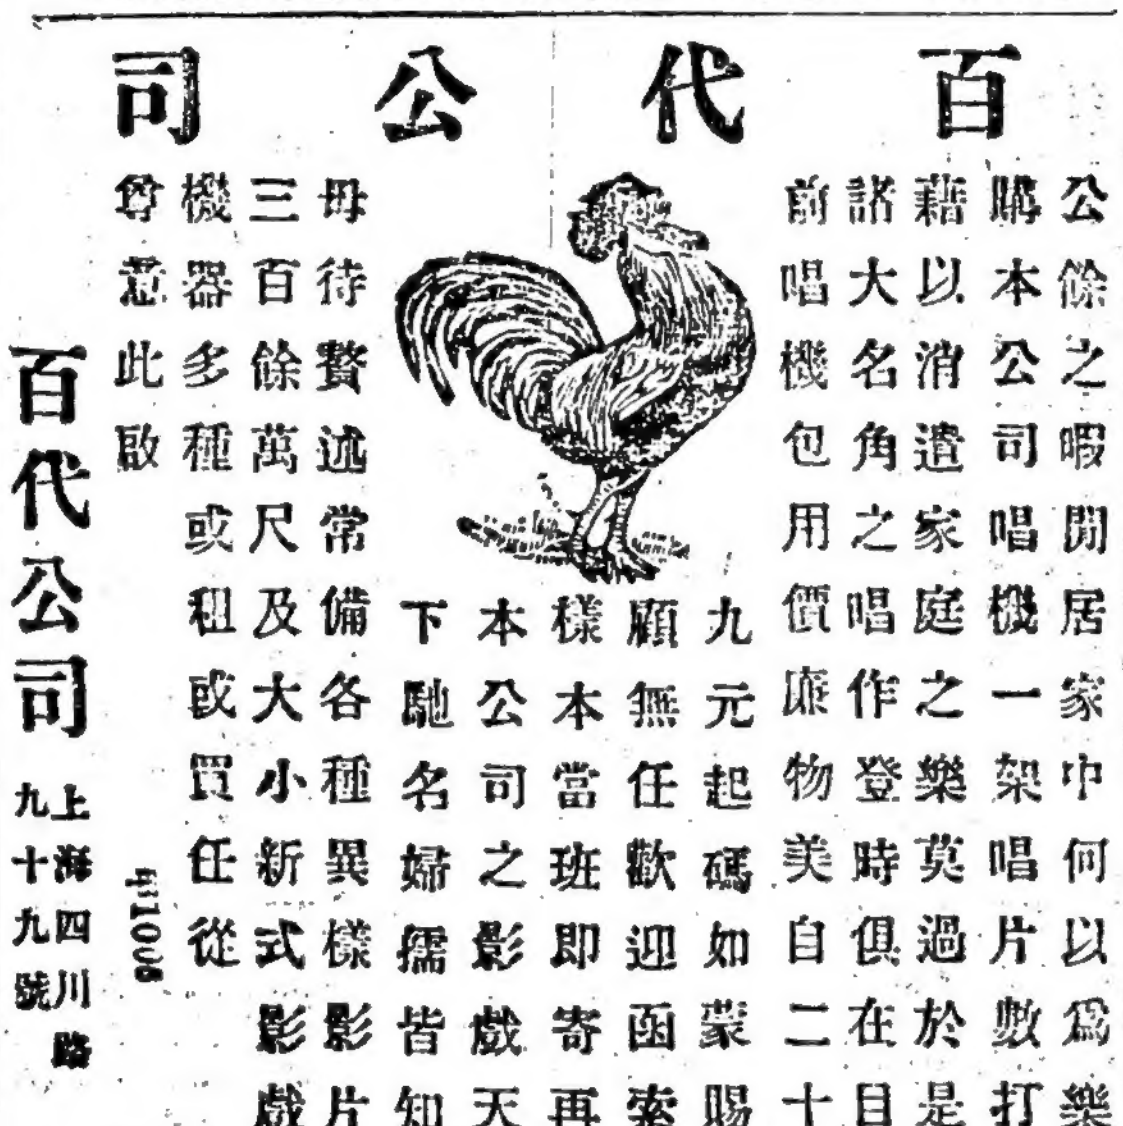 百代公司
公餘之暇閒居家中何以爲樂
購本公司唱機一架唱片數打
藉以消遣家庭之樂莫過於是
諸大名角之唱作登時俱在目
前唱機包用價廉物美自二十
九元起碼如蒙賜
顧無任歡迎函索
樣本當班即寄再
本公司之影戲天
下馳名婦孺皆知
毋待贅述常備各種異樣影片
三百餘萬尺及大小新式影戲
機器多種或租或買任從
尊意此啟
百代公司
上海四川路
九十九號